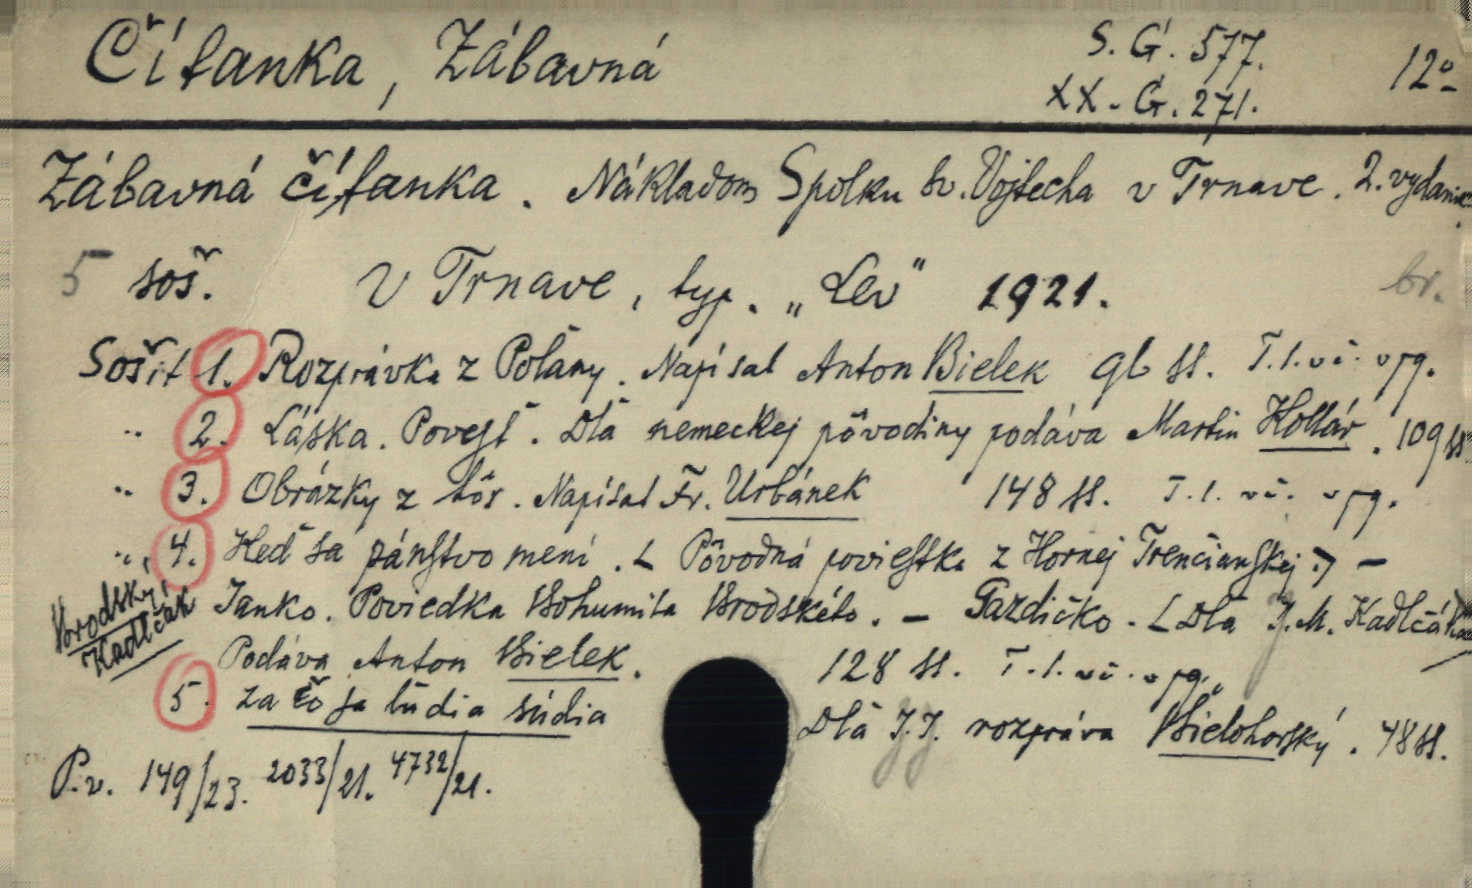 Čítanka, Zábavná
S. G. 577.
XX. G. 271.
12º
Zábavná čítanka. Nákladom Spolku sv. Vojtecha v Trnave. 2. vydanie.
5 soš. V Trnave, typ. „Lev" 1921. br.
Sošit 1. Rozprávka z Polany. Napísal Anton Bielek 96 ss. T. l. vč. v pg.
" 2. Láska. Povesť. Dľa nemeckej pôvodiny podáva Martin Kollár. 109 ss.
" 3. Obrázky z hôr. Napísal Fr. Urbánek 148 ss. T. l. vč. v pg.
" 4. Keď sa pánstvo mení. (: Pôvodná poviestka z Hornej Trenčianskej :) –
Brodský,
Kadlčák
Janko. Poviedka Bohumila Brodského. – Gazdičko. (: Dľa J. M. Kadlčáka
Podáva Anton Bielek. 128 ss. T. l. vč. v pg.
5. Za čo sa ľudia súdia Dľa J. J. rozpráva Bielohorský. 48 ss.
J
JJ
P. v. 149/23. 2033/21. 4732/21.